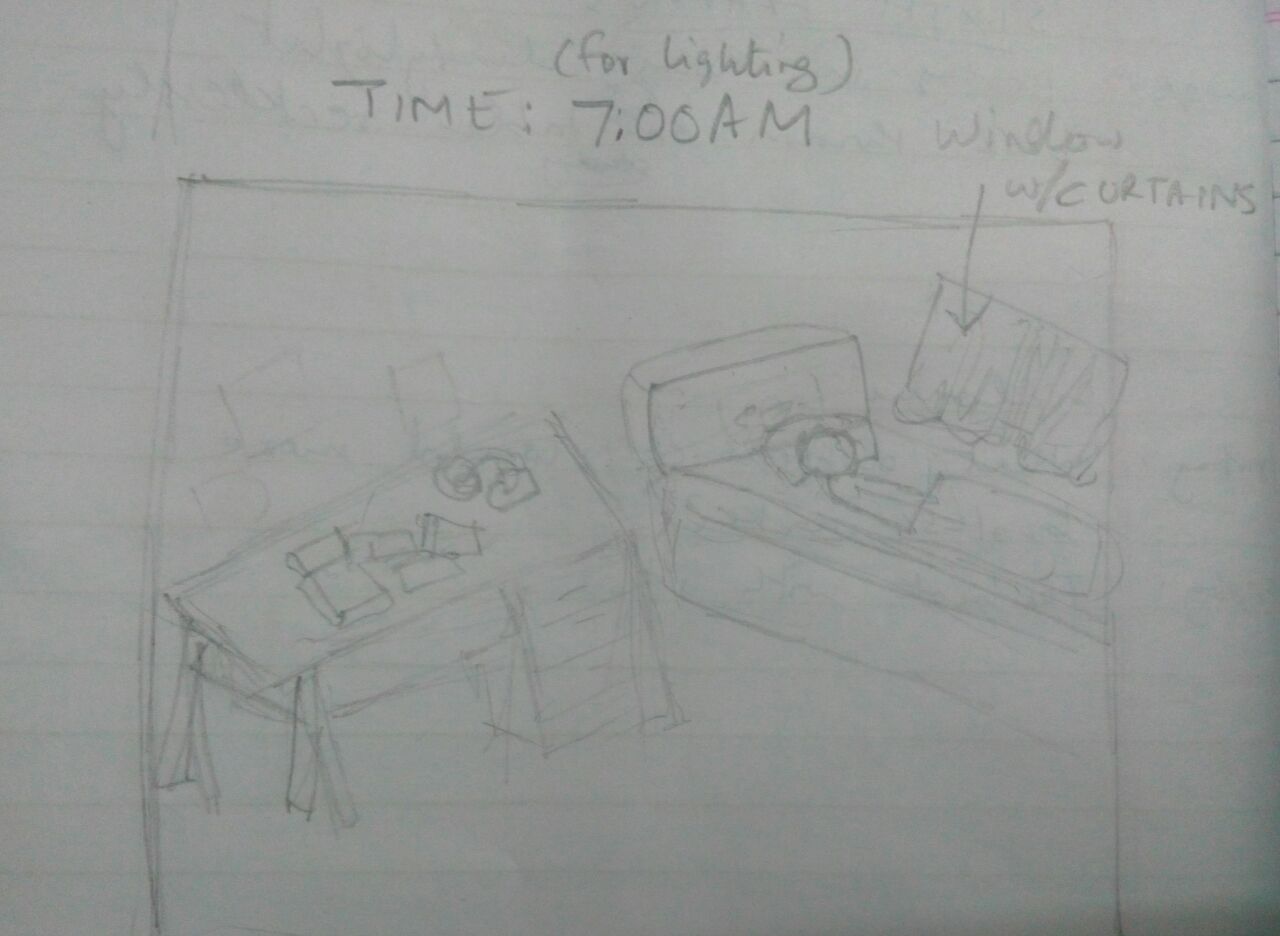 (for lighting)
TIME: 7:00AM
Window
W/CURTAINS